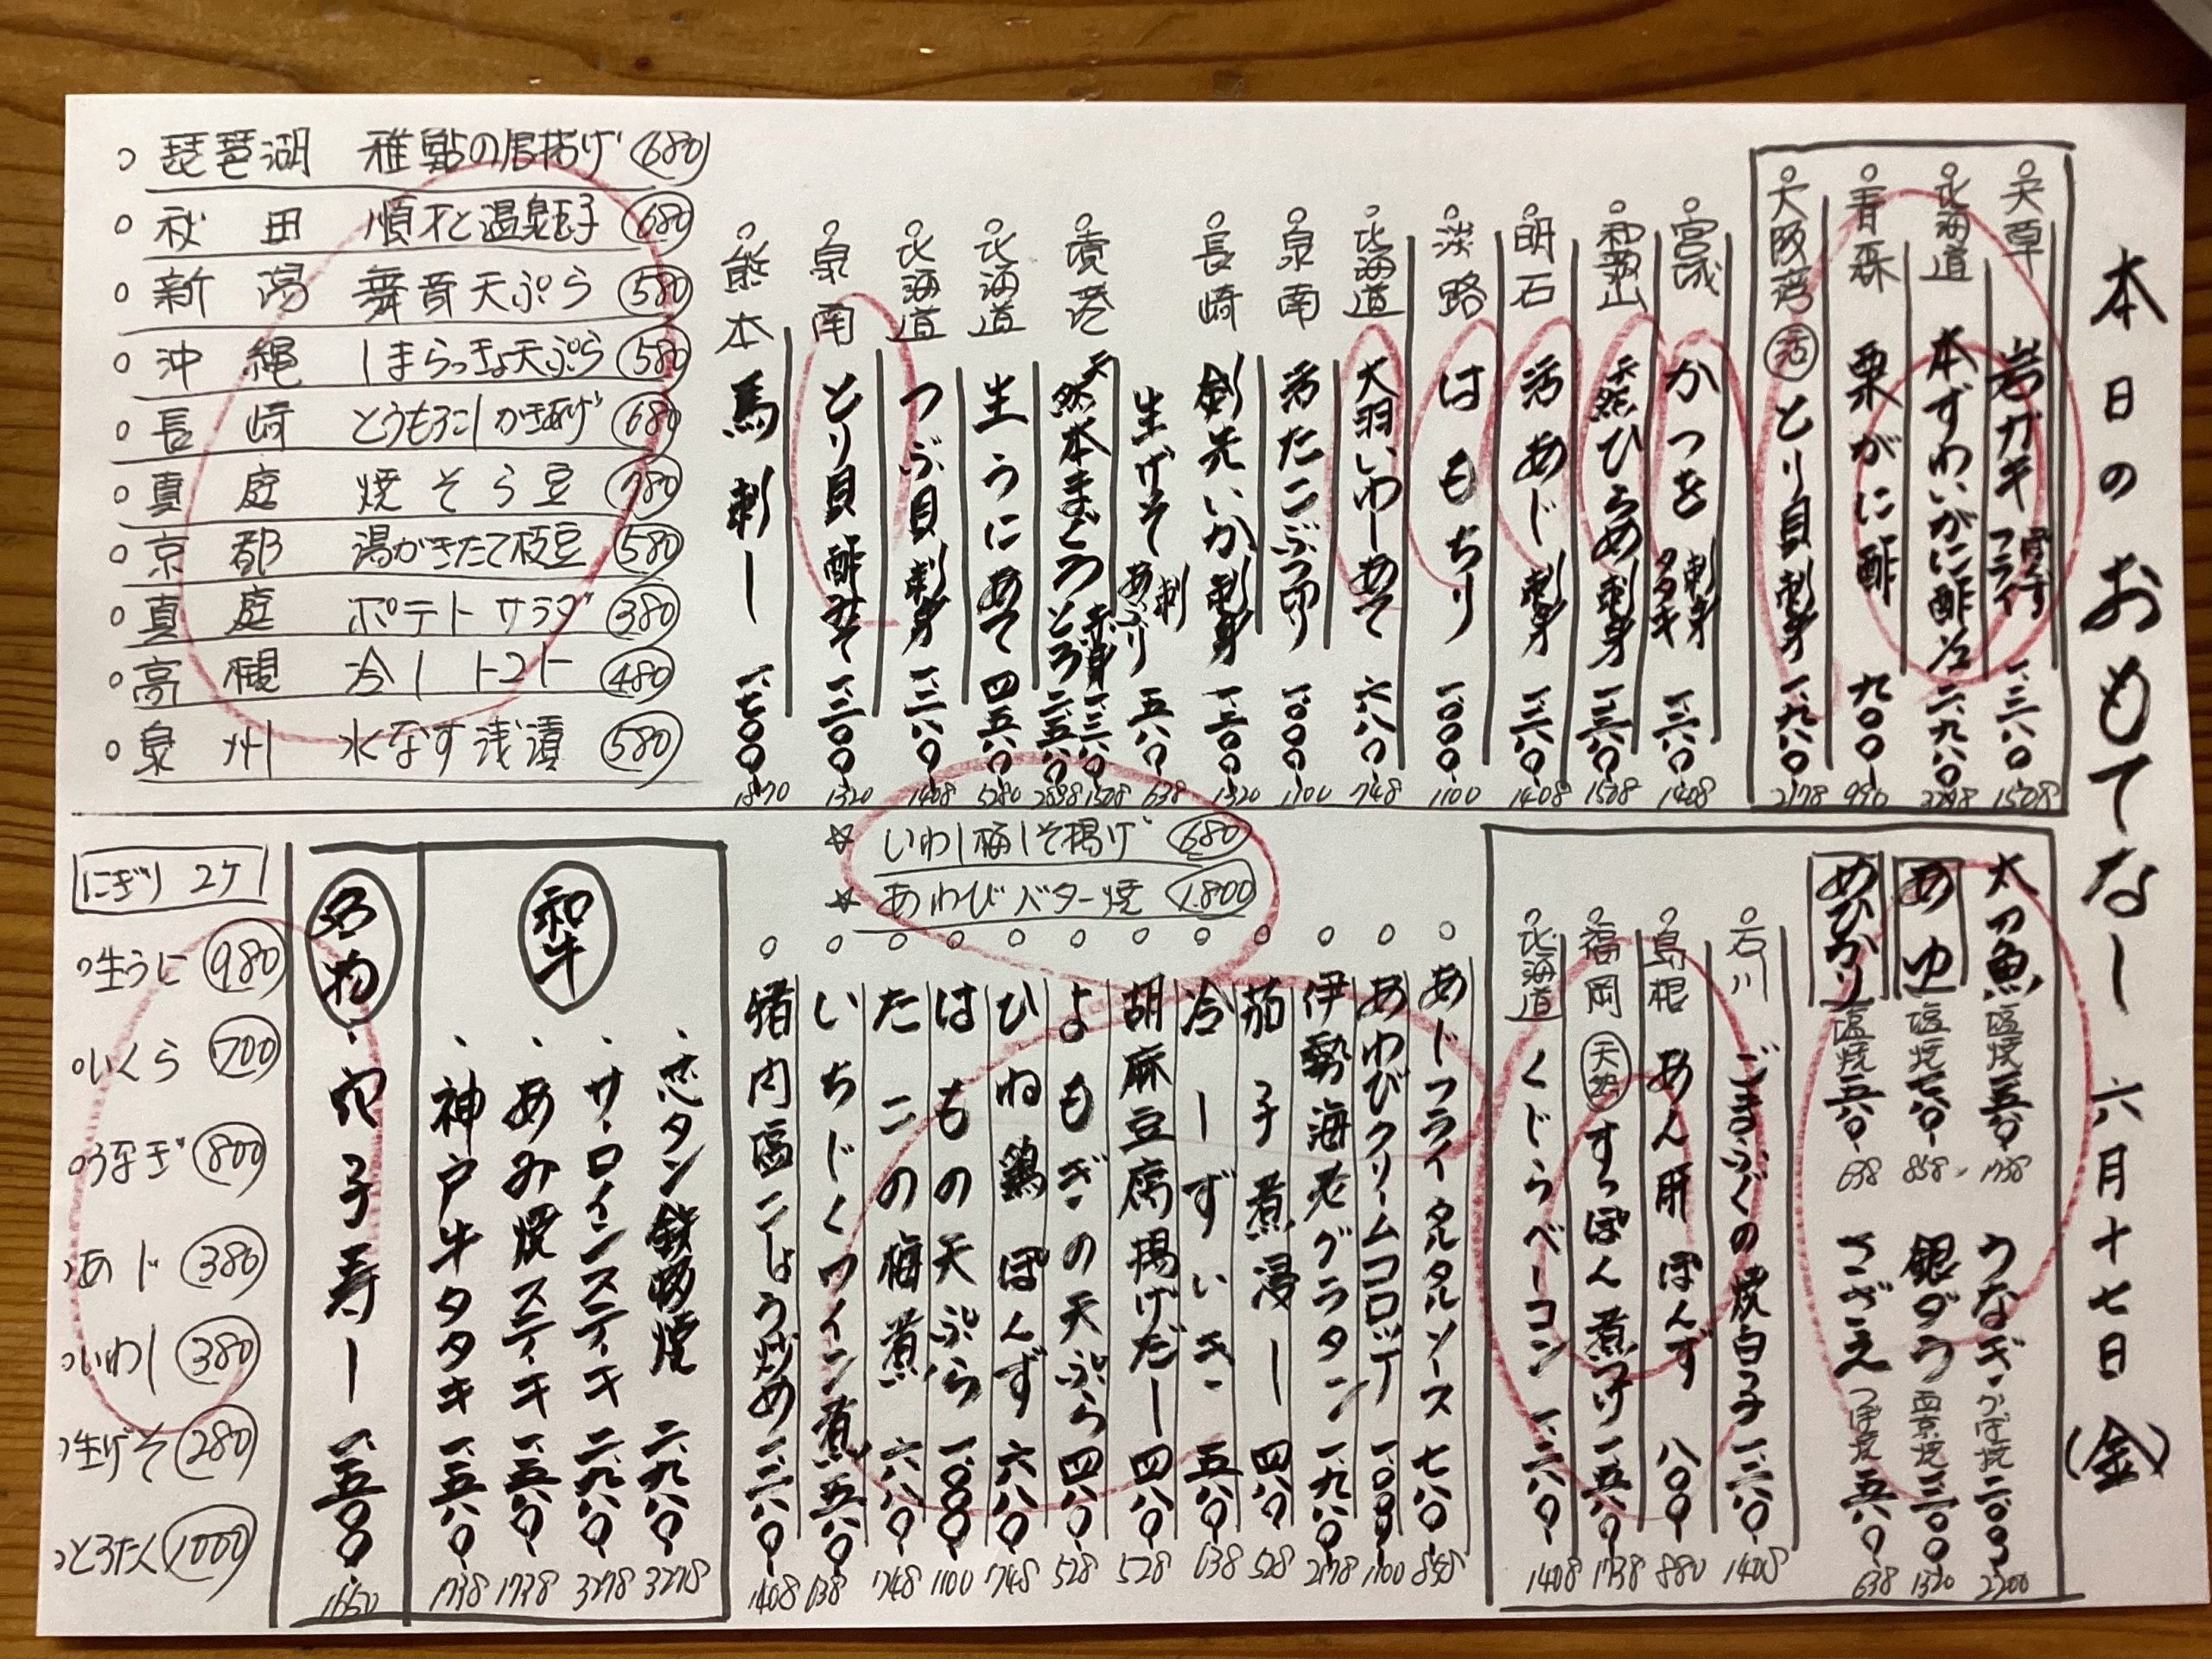 本日のおもてなし 六月十七日(金)
天草 岩ガキ ぽんず フライ 一、三八〇 1508
北海道 本ずわいがに酢 二、九八〇
青森 栗がに酢 九〇〇 990
大阪湾 活 とり貝 刺身 一、九八〇 2178
宮城 かつを 刺身 タタキ 一、二八〇 1408
和歌山 天然ひらめ 刺身 一、三八〇 1508
明石 活あじ 刺身 一、二八〇 1408
淡路 はもちり 一、〇〇〇 1100
北海道 大羽いわしあて 六八〇 748
泉南 活たこぶつ切り 一、〇〇〇 1100
長崎 剣先いか 刺身 一、二〇〇 1320
生げそ 刺 あぶり 五八〇 638
境港 天然本まぐろ 赤身 一、三八〇 1508 とろ 二、五八〇 2838
北海道 生うにあて 四、八〇〇 5280
北海道 つぶ貝 刺身 一、二八〇 1408
泉南 とり貝 酢みそ 一、二〇〇 1320
熊本 馬刺し 一、七〇〇 1870
琵琶湖 稚鮎の唐揚げ 680
秋田 順才と温泉玉子 680
新潟 舞茸天ぷら 580
沖縄 しまらっきょ天ぷら 580
長崎 とうもろこしかきあげ 680
真庭 焼そら豆 780
京都 湯がきたて枝豆 580
真庭 ポテトサラダ 380
高槻 冷しトマト 480
泉州 水なす浅漬 580
☆ いわし梅しそ揚げ 680
☆ あわびバター焼 1,800
太刀魚 塩焼 一、五八〇 1738
あゆ 塩焼 七八〇 858
めひかり 塩焼 五八〇 638
うなぎ かば焼 二、〇〇〇 2200
銀ダラ 西京焼 一、二〇〇 1320
さざえ つぼ焼 五八〇 638
石川 ごまふぐの焼白子 一、二八〇 1408
島根 あん肝ぽんず 八〇〇 880
福岡 天然 すっぽん煮つけ 一、五八〇 1738
北海道 くじらベーコン 一、二八〇 1408
あじフライタルタルソース 七八〇 858
あわびクリームコロッケ 一、〇〇〇 1100
伊勢海老グラタン 一、九八〇 2178
茄子煮浸し 四八〇 528
冷しずいき 五八〇 638
胡麻豆腐揚げだし 四八〇 528
よもぎの天ぷら 四八〇 528
ひね鶏ぽんず 六八〇 748
はもの天ぷら 一、〇〇〇 1100
たこの梅煮 六八〇 748
いちじくワイン煮 五八〇 638
猪肉塩こしょう炒め 一、二八〇 1408
和牛
芯タン鉄板焼 二、九八〇 3278
サーロインステーキ 二、九八〇 3278
あみ焼ステーキ 一、五八〇 1738
神戸牛タタキ 一、五八〇 1738
名物
穴子寿し 一、五〇〇 1650
にぎり 2ケ
生うに 980
いくら 700
うなぎ 800
あじ 380
いわし 380
生げそ 280
とろたく 1000